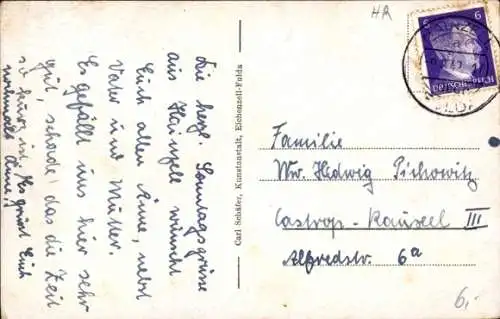 Die hergl. Sonntagsgrüsse
aus Hainzell wünscht
Euch allen Anne, nebst
Vater und Mutter.
Es gefällt uns hier sehr
gut, schade, das die Zeit
so kurz ist. Es grüst Euch
nochmals Anne!
Carl Schäfer, Kunstanstalt, Eichenzell-Fulda
HR
6
Deutsches Reich
Familie
Ww. Hedwig Pichowitz
Castrop-Rauxel III
Alfredstr. 6a
6,-